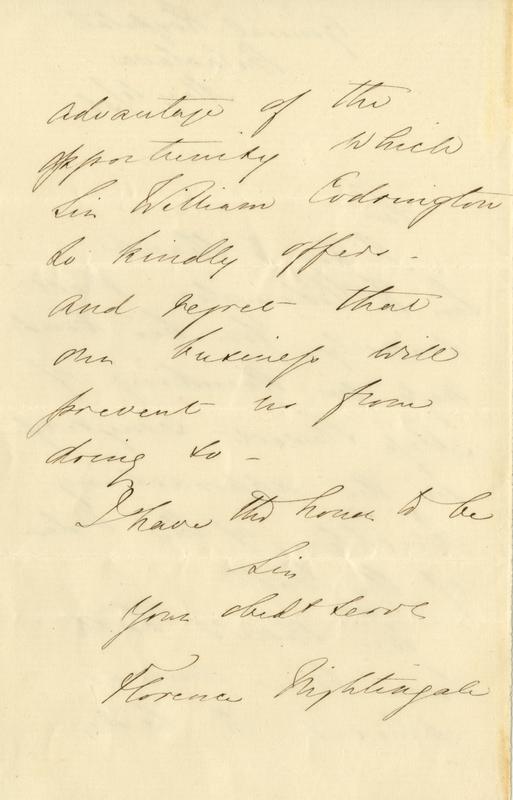 advantage of the
opportunity which
Sir William Codrington
so kindly offers -
and regret that
our business will
prevent us from
doing so -
I have the honor to be
Sir
Your obedt servt
Florence Nightingale